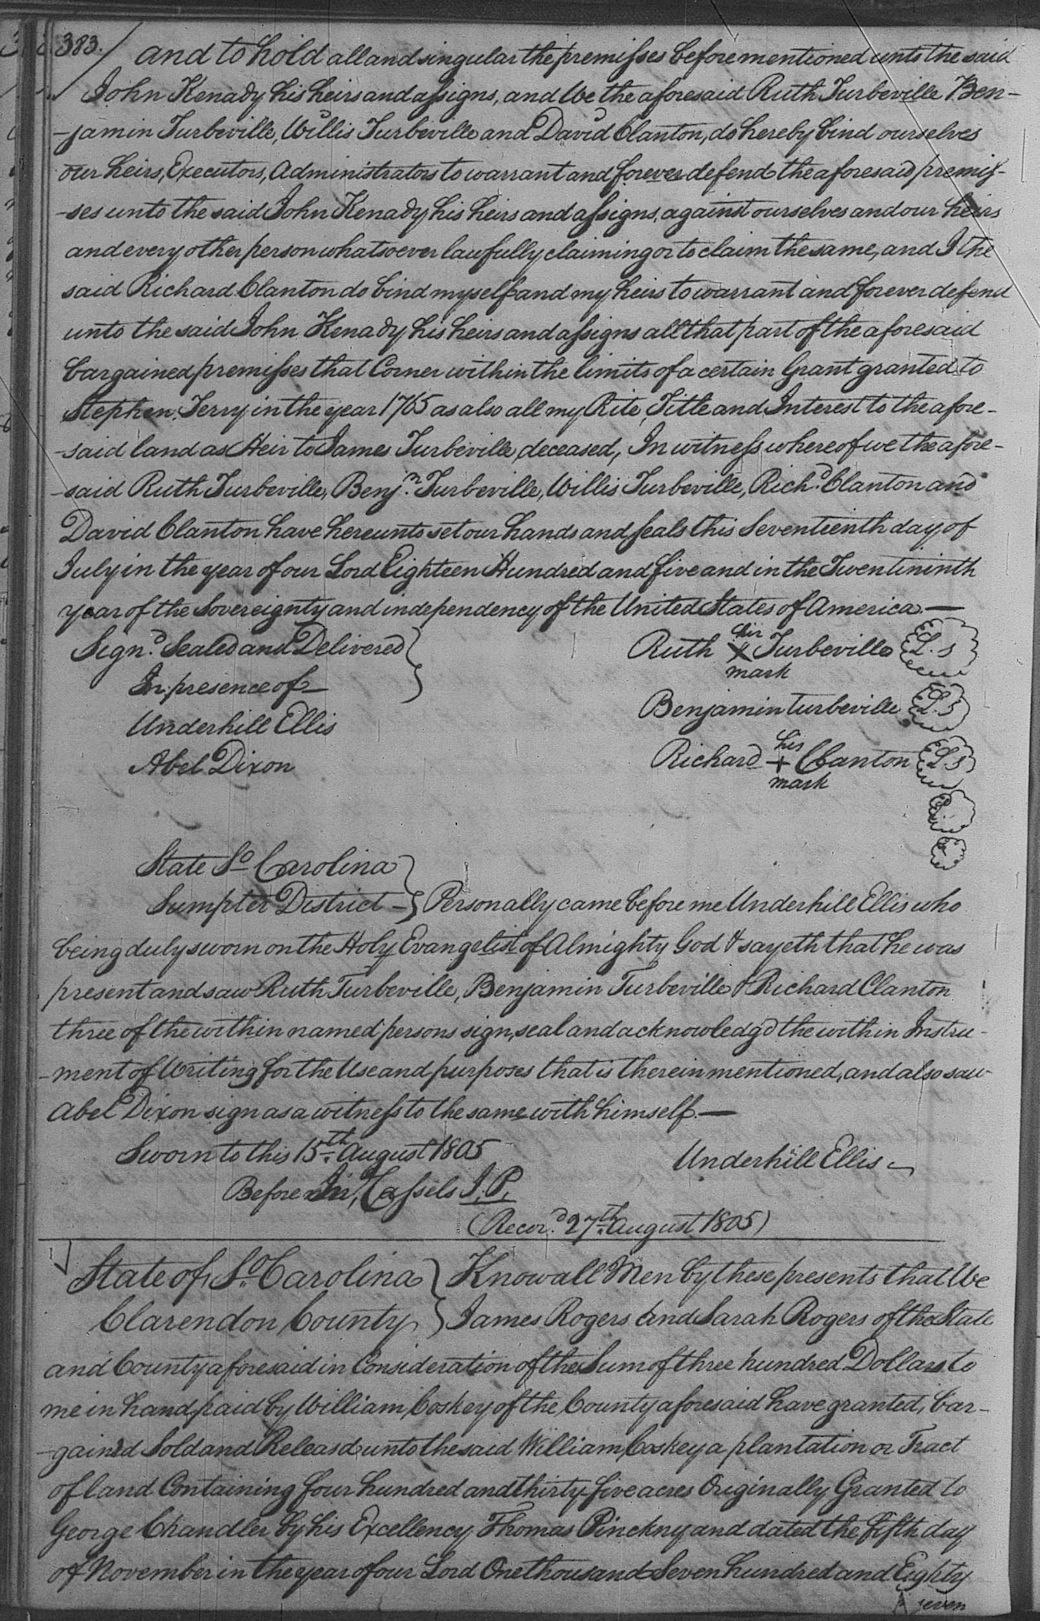 383.
and to hold all and singular the premisses before mentioned unto the said
John Kenady his heirs and assigns, and We the aforesaid Ruth Turbeville Ben-
-jamin Turbeville, Willis Turbeville and David Clanton, do hereby bind ourselves
our heirs, Executors, Administrators to warrant and forever defend the aforesaid premis-
-ses unto the said John Kenady his heirs and assigns, against ourselves and our heirs
and every other person whatsoever lawfully claiming or to claim the same, and I the
said Richard Clanton do bind myself and my heirs to warrant and forever defend
unto the said John Kenady his heirs and assigns all that part of the aforesaid
bargained premisses that Corner within the limits of a certain Grant granted to
Stephen Terry in the year 1765 as also all my Rite, Title and Interest to the afore-
-said land as Heir to James Turbeville, deceased, In witness whereof we the afore-
-said Ruth Turbeville, Benjn. Turbeville, Willis Turbeville, Richd. Clanton and
David Clanton have hereunto set our hands and seals this Seventeenth day of
July in the year of our Lord Eighteen Hundred and five and in the Twentininth
year of the Sovereignty and independency of the United States of America —
Signd. Sealed and Delivered } Ruth her X mark Turbeville L.S
In presence of
Underhill Ellis Benjamin turbeville L.S
Abel Dixon Richard his + mark Clanton L S
State So. Carolina }
Sumpter District — } Personally came before me Underhill Ellis who
being duly sworn on the Holy Evangelist of Almighty God & sayeth that he was
present and saw Ruth Turbeville, Benjamin Turbeville & Richard Clanton
three of the within named persons sign, seal and acknowledgd the within Instru-
-ment of Writing for the Use and purposes that is therein mentioned, and also saw
Abel Dixon sign as a witness to the same with himself —
Sworn to this 15th. August 1805 Underhill Ellis
Before Cassels J. P.
(Record. 27th. August 1805)
State of So. Carolina } Know all Men by these presents that We
Clarendon County } James Rogers and Sarah Rogers of the State
and County aforesaid in Consideration of the Sum of three hundred Dollars to
me in hand paid by William Coskey of the County aforesaid have granted, bar-
-gaind Sold and Releasd unto the said William Coskey a plantation or Tract
of land Containing four hundred and thirty five acres Originally Granted to
George Chandler by his Excellency Thomas Pinckny and dated the fifth day
of November in the year of our Lord One thousand Seven hundred and Eighty
seven